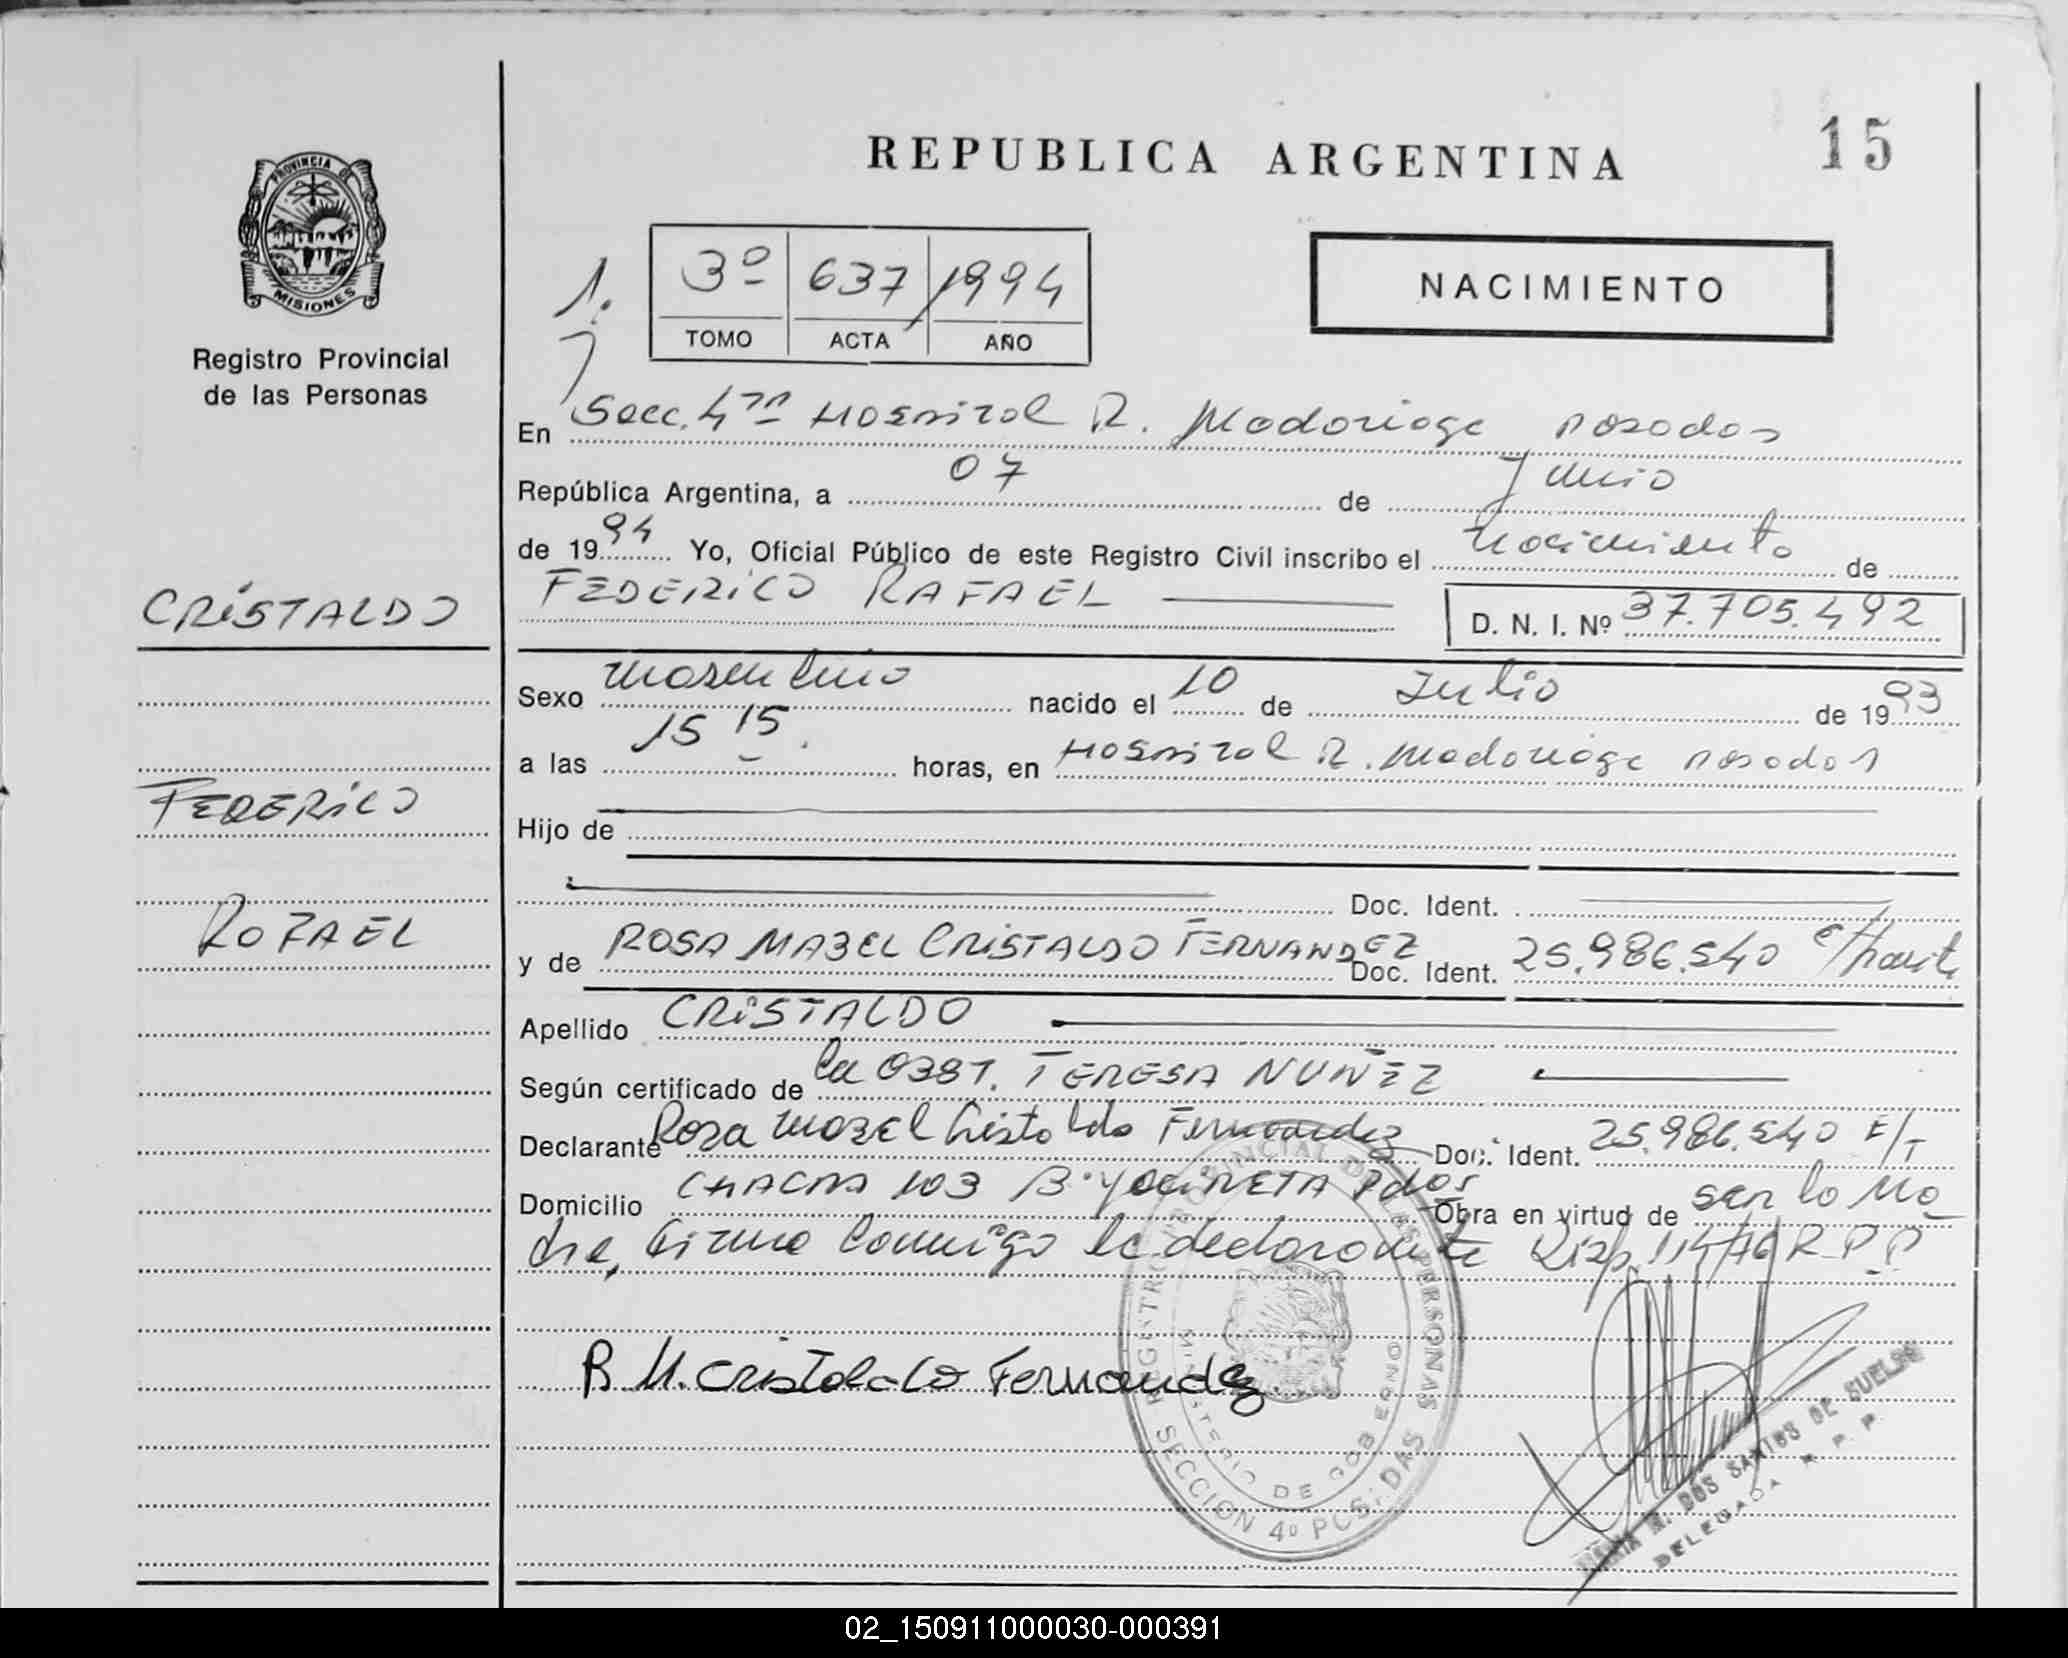 REPUBLICA ARGENTINA
15
PROVINCIA DE
MISIONES
Registro Provincial
de las Personas
3º 637 1994
TOMO ACTA AÑO
NACIMIENTO
En Secc. 4ta Hospital R. Madariaga Posadas
República Argentina, a 07 de Junio
de 1994 Yo, Oficial Público de este Registro Civil inscribo el Nacimiento de
FEDERICO RAFAEL
D. N. I. Nº 37.705.492
CRISTALDO
FEDERICO
RAFAEL
Sexo masculino nacido el 10 de Julio de 1993
a las 15 15. horas, en Hospital R. Madariaga Posadas
Hijo de
Doc. Ident.
y de ROSA MABEL CRISTALDO FERNANDEZ Doc. Ident. 25.986.540 e/tramite
Apellido CRISTALDO
Según certificado de la 0381. TERESA NUÑEZ
Declarante Rosa Mabel Cristaldo Fernandez Doc. Ident. 25.986.540 E/T
Domicilio CHACRA 103 Bº YACIRETA Pdas Obra en virtud de ser la ma
dre, firma conmigo la declarante R.P.P
R M. Cristaldo Fernandez
REGISTRO PROVINCIAL DE LAS PERSONAS
MINISTERIO DE GOBIERNO
SECCION 4º POSADAS
DOS SANTOS DE SUELDO
DELEGADA R. P. P.
02_150911000030-000391